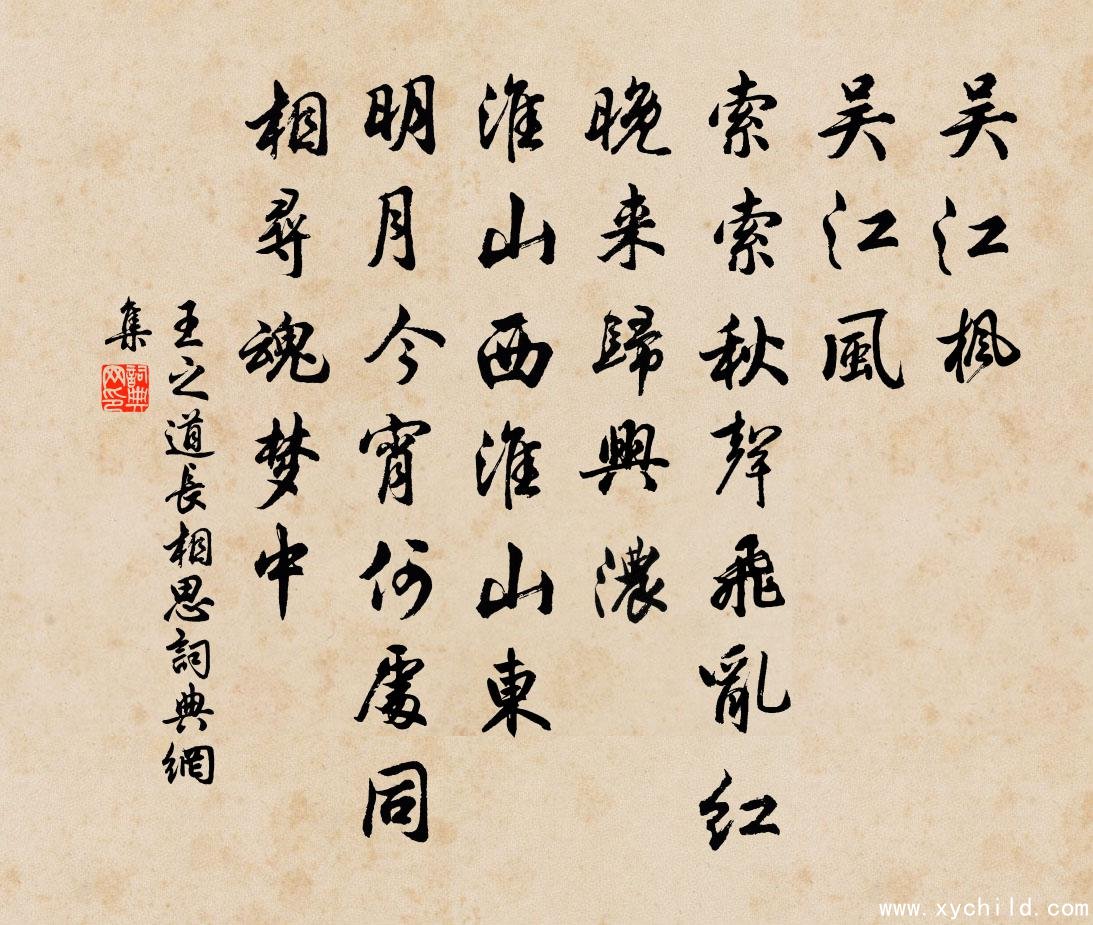 吴江枫
吴江風
索索秋聲飛亂红
晚来歸興濃
淮山西淮山東
明月今宵何處同
相尋魂梦中
王之道長相思詞典網
集
詞典网印
www.xychild.com